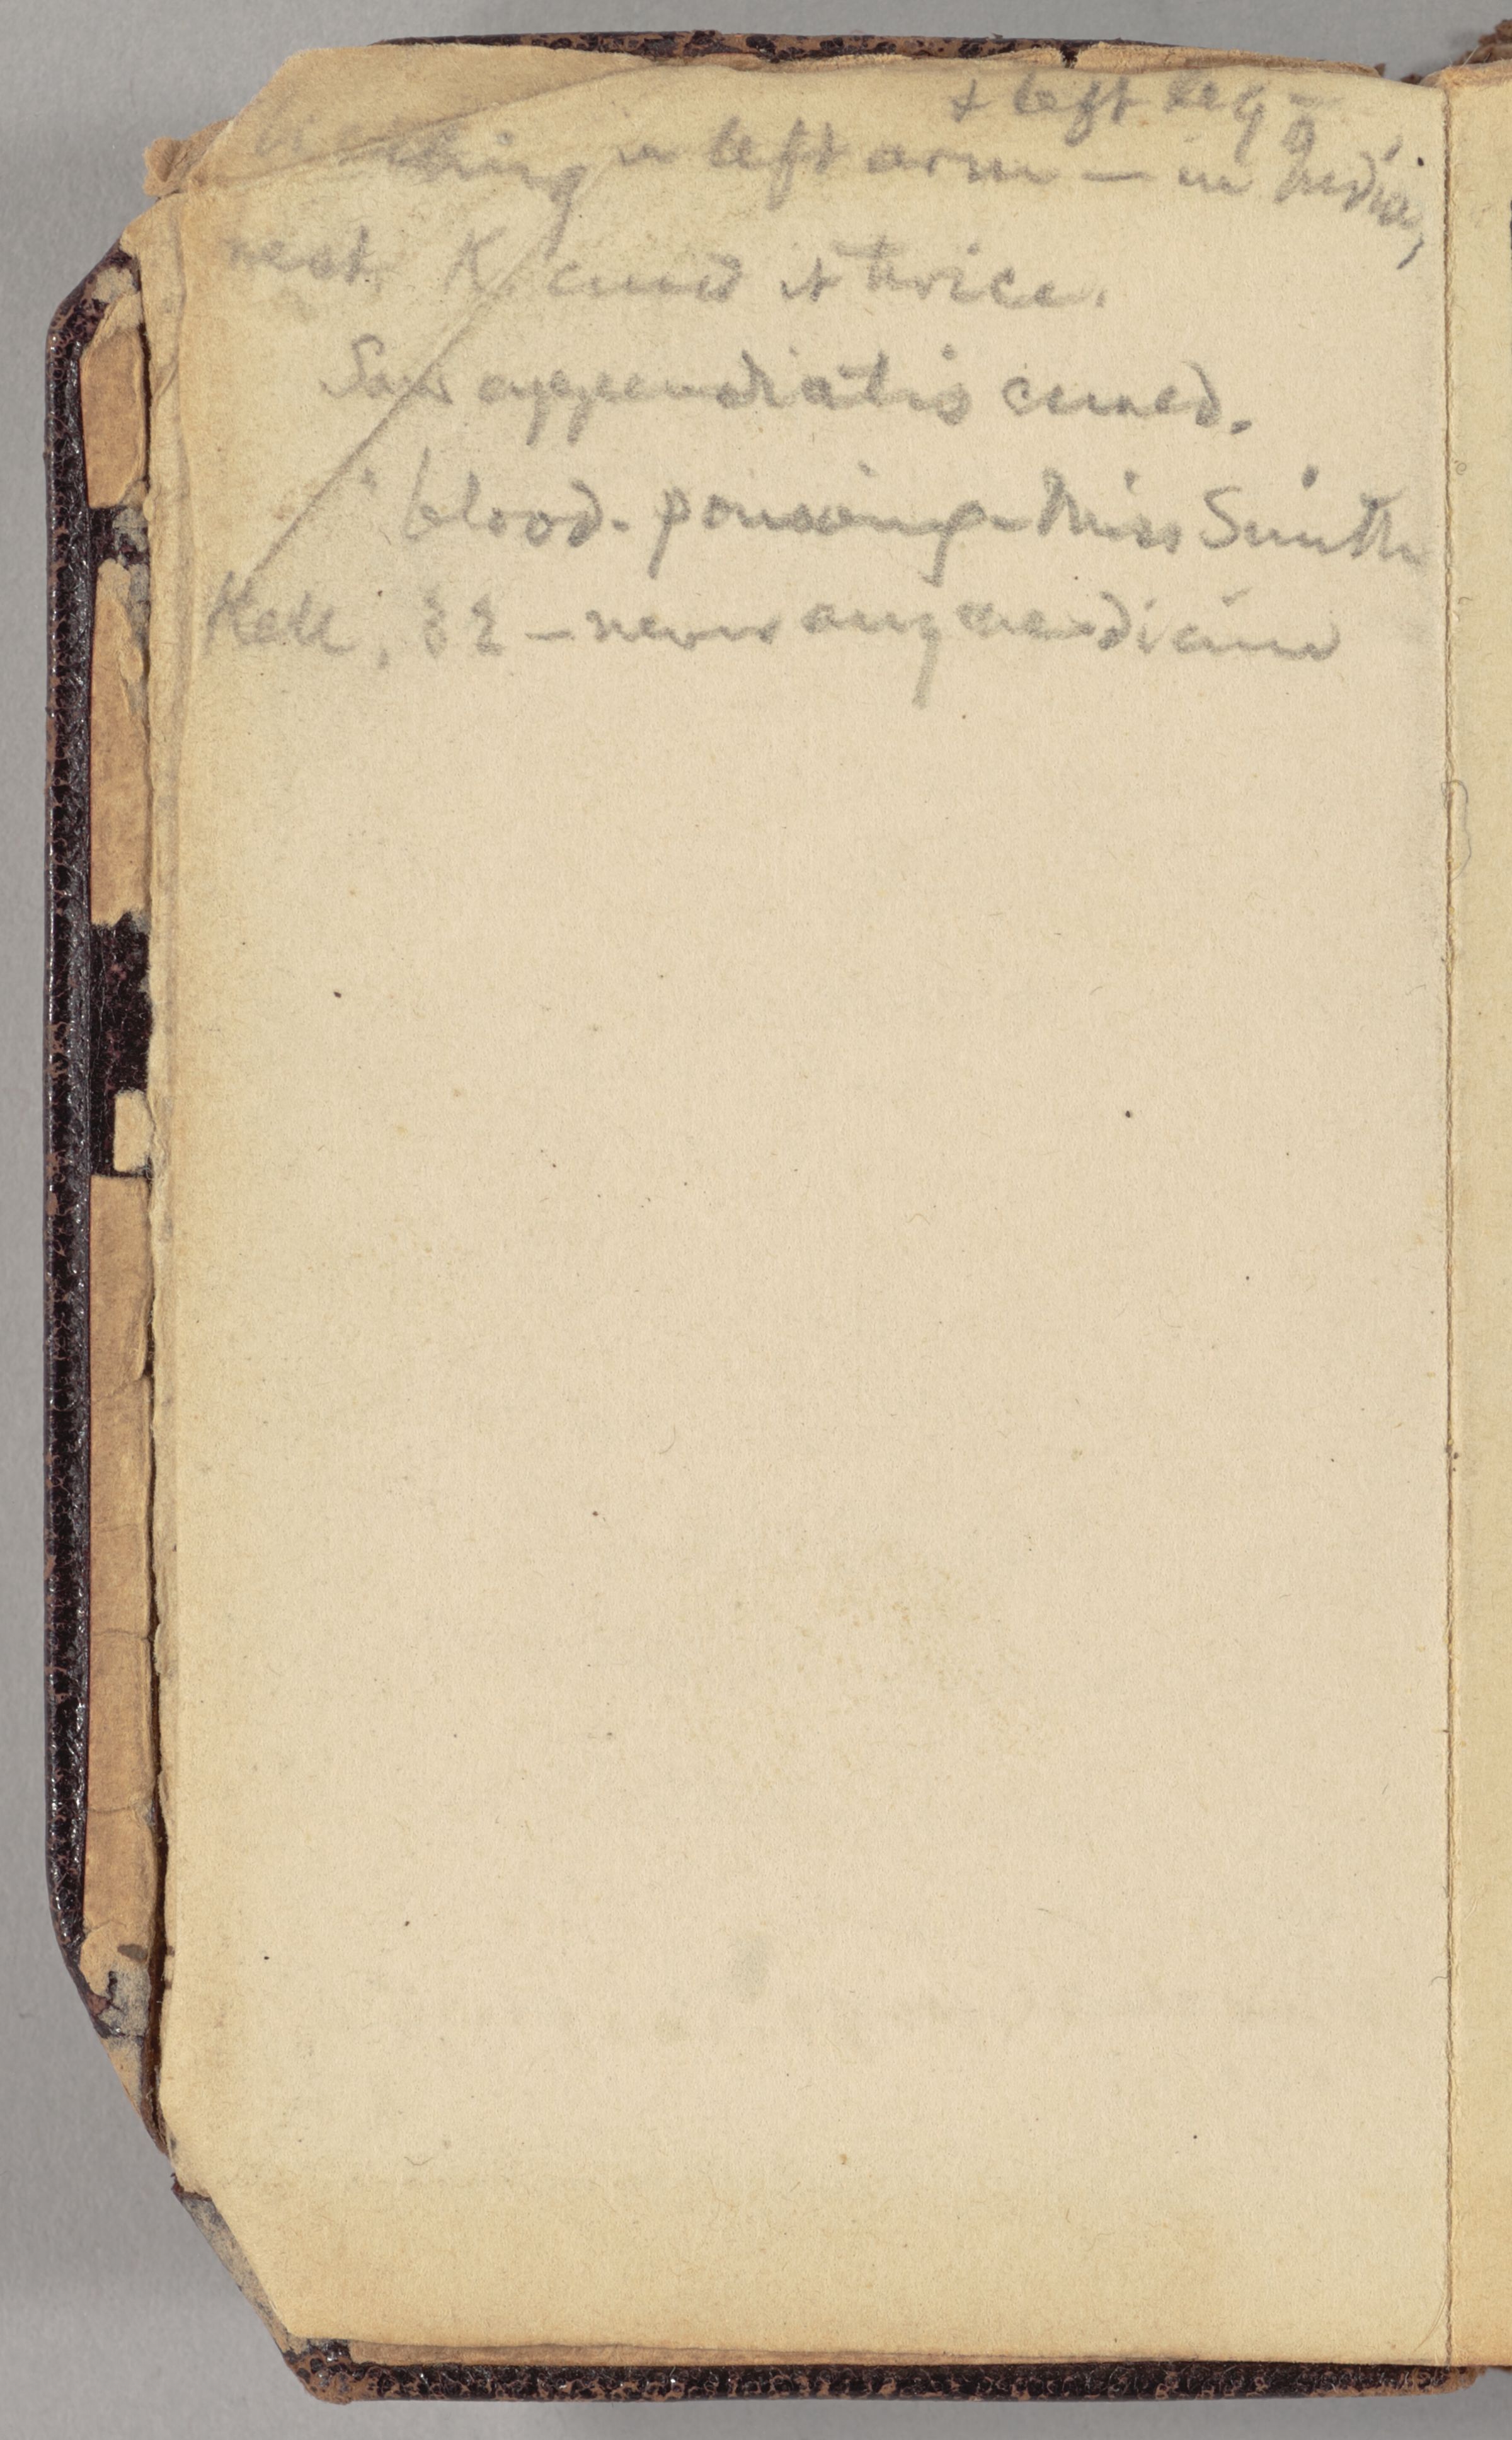 & left leg
in left arm — in India,
K. cured it twice.
Saw appendicitis cured.
" blood-poisoning — Miss Smith
82 — never any medicine